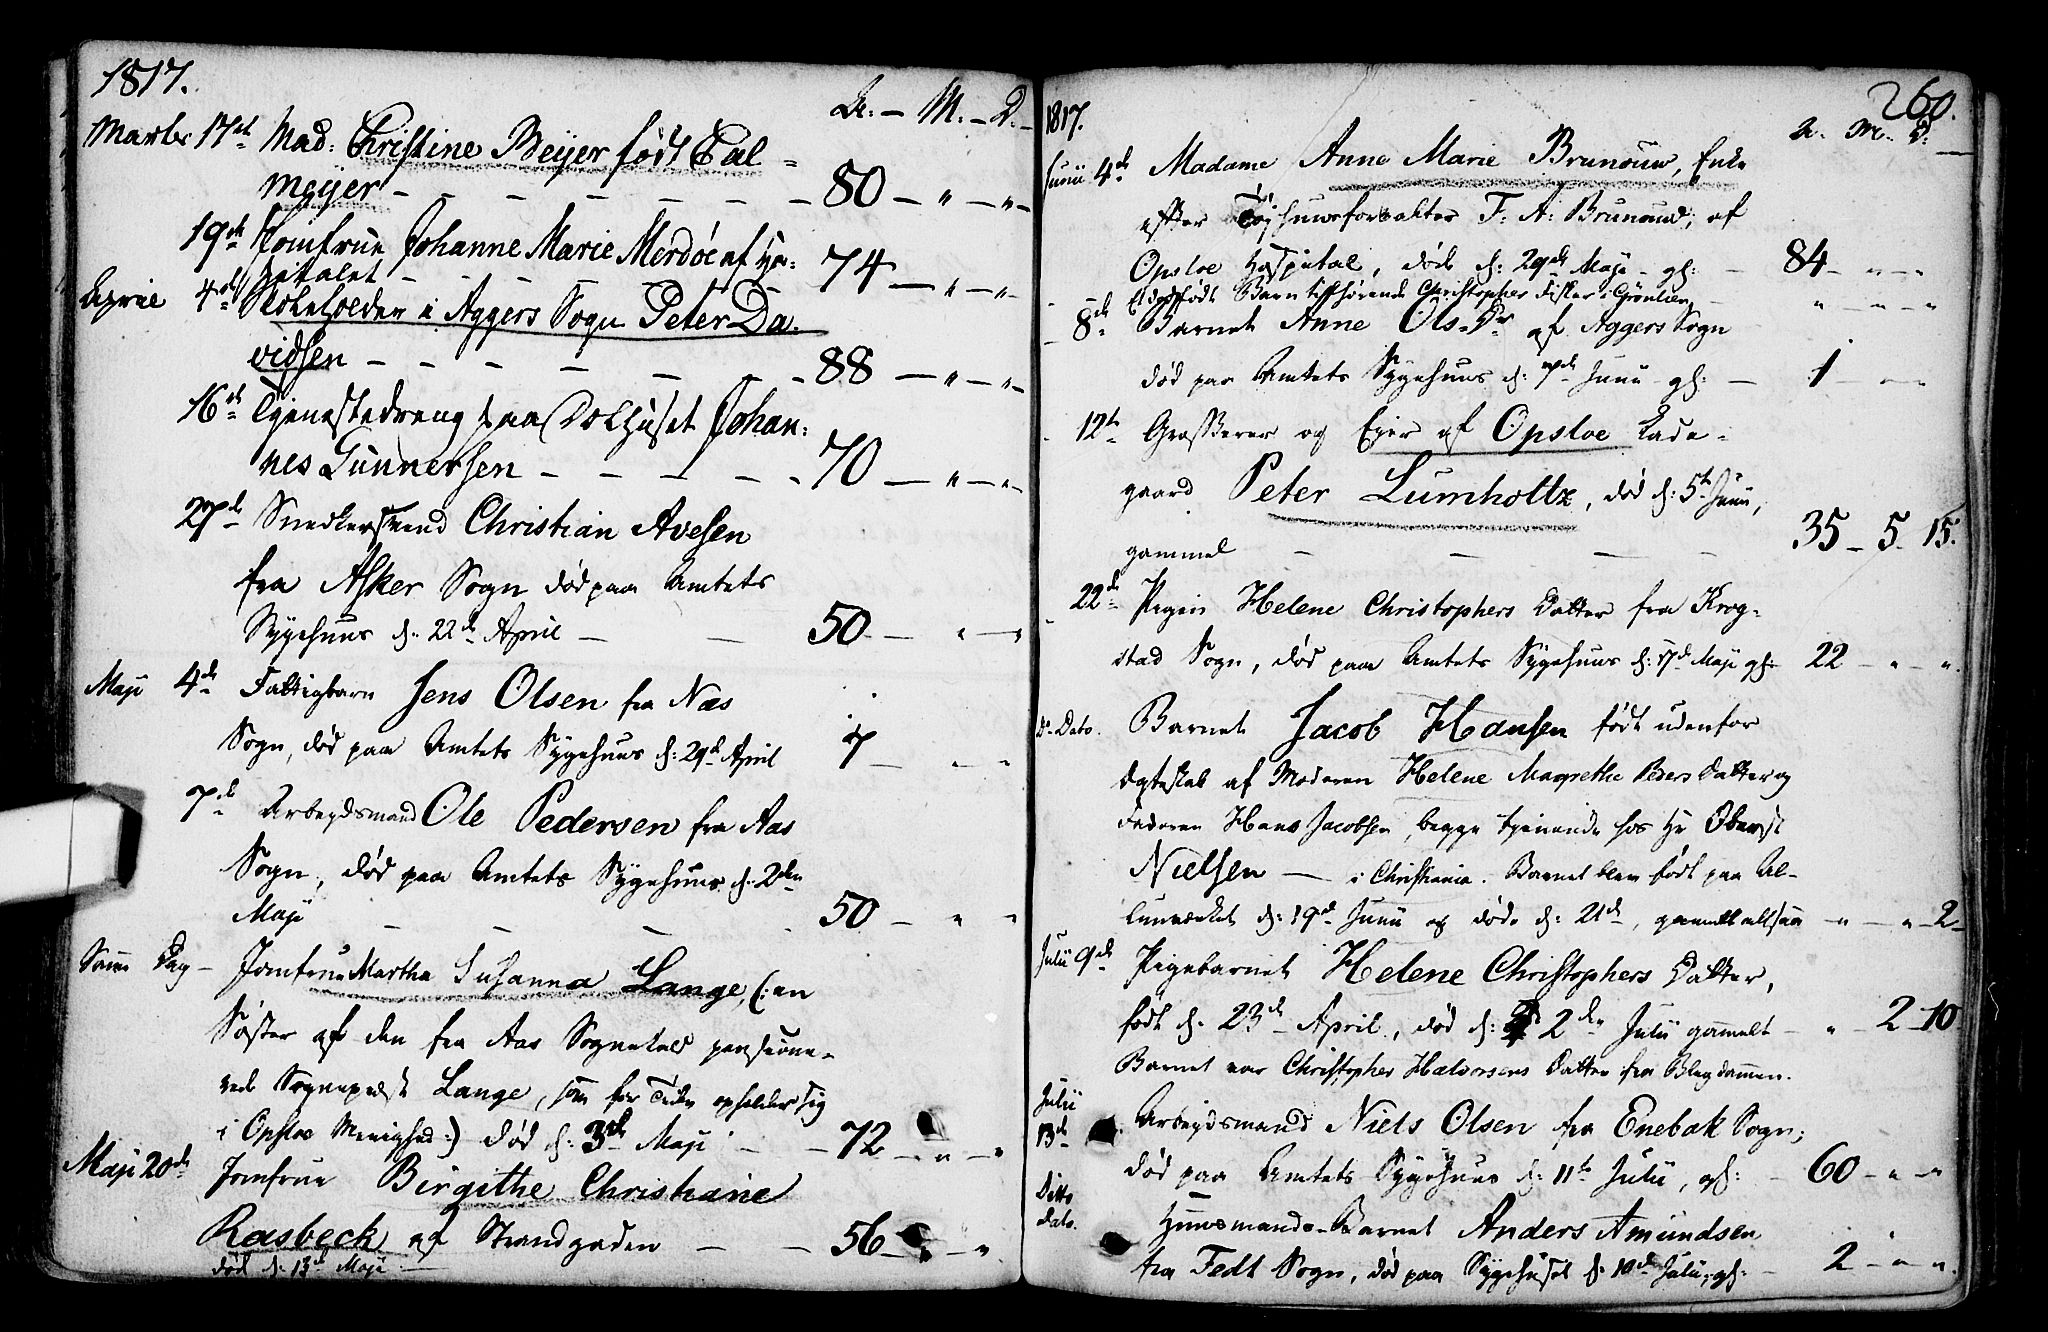 1817.
A: — M. — D. —
Marts 17de Mad: Christine Beyer født Cal-
meyer — — — — — — 80 — " — " —
19de Jomfrue Johanne Marie Merdöe af Ho:
spitalet — — — — — 74 — " — " —
Aprill 4de Skoleholder i Aggers Sogn Peter Da-
vidsen — — — — — — 88 — " — " —
16de Tjenestedreng paa Dolhuset Johan-
nes Gunnersen — — — — — 70 — " — " —
27de Snedkersvend Christian Avesen
fra Asker Sogn død paa Amtets
Sygehuus d: 22de April — — 50 — " — "
Maji 4de Fattigbarn Jens Olsen fra Næs
Sogn, død paa Amtets Sygehuus d: 29de April 7 — " — "
7de Arbeydsmand Ole Pedersen fra Aas
Sogn, død paa Amtets Sygehuus d. 2den
Maji — — — 50 — " — "
Samme Dag — Jomfrue Martha Susanna Lange, (: en
Søster af den fra Aas Sognekald pensione-
rede Sognepræst Lange, som for Tiden opholder sig
i Opsloe Menighed :) død d: 3de Maji — — 72 — " — "
Maji 20de Jomfrue Birgithe Christiane
Rasbeck af Strandgaden — — 56 — " — "
død d: 13de Maji —
260.
1817.
A. M. D. —
Junii 4de Madame Anne Marie Brunouw, Enke
efter Tøjhuusforvalter F: A: Brunoud, af
Opsloe Hospital, døde d: 29de Maji — gl: — 84 — " — "
Et dødfødt Barn tilhørende Christopher Fisker i Grönlien — " — " — "
8de Barnet Anne Ols Dr af Aggers Sogn
død paa Amtets Sygehuus d: 7de Junii gl: — 1 — " — "
12te Grosserer og Ejer af Opsloe Lade-
gaard Peter Lumholtz, død d: 5te Junii,
gammel — — — — 35 — 5 — 15.
22de Pigen Helene Christophers Datter fra Krog-
stad Sogn, død paa Amtets Sygehuus d: 17de Maji gl: 22 — " — "
Do Dato. Barnet Jacob Hansen født udenfor
Ægteskab af Moderen Helene Magrethe Peders Datter og
Faderen Hans Jacobsen, begge tjenende hos Hr Oberst
Nielsen — i Christiania. Barnet blev født paa Al-
lunværket d: 19de Junii og døde d: 21de, gammelt altsaa — " — " — 2 —
Julii 9de Pigebarnet Helene Christophers Datter,
født d. 23de April, død d: 2den Julii gamelt — " — 2 — 10
Barnet var Christopher Halvorsens Datter fra Blegdammen.
Julii
13de Arbeydsmand Niels Olsen fra Enebak Sogn,
død paa Amtets Sygehuus d: 11te Julii, gl: — 60 — " — "
Ditto
Dato. Huusmands-Barnet Anders Amundsen
fra Fedt Sogn, død paa Sygehuset d: 10de Julii, gl: — 2 — " — "